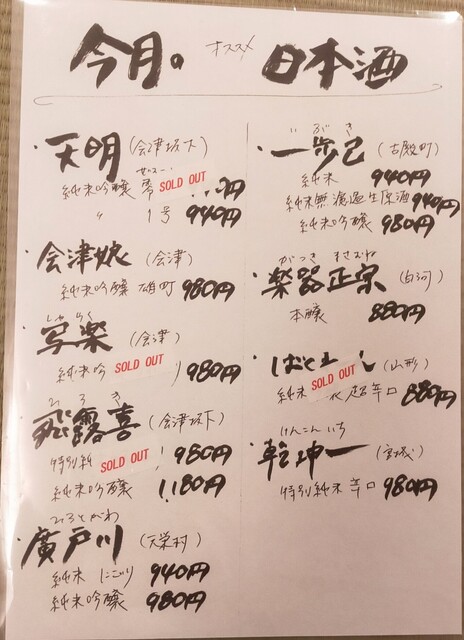 今月の オススメ 日本酒
・天明(会津坂下)
純米吟醸 零 SOLD OUT 円
〃 1号 940円
・会津娘(会津)
純米吟醸 雄町 980円
しゃらく
・写楽(会津)
純米吟 SOLD OUT 980円
ひろき
・飛露喜(会津坂下)
特別純 SOLD OUT 980円
純米吟醸 1,180円
ひろとがわ
・廣戸川(天栄村)
純米 にごり 940円
純米吟醸 980円
いぶき
・一歩己(古殿町)
純米 940円
純米無濾過生原酒 940円
純米吟醸 980円
がっきまさむね
・楽器正宗(白河)
本醸 880円
・ばくれん(山形)
純米 SOLD OUT 超辛口 880円
けんこんいち
・乾坤一(宮城)
特別純米 辛口 980円